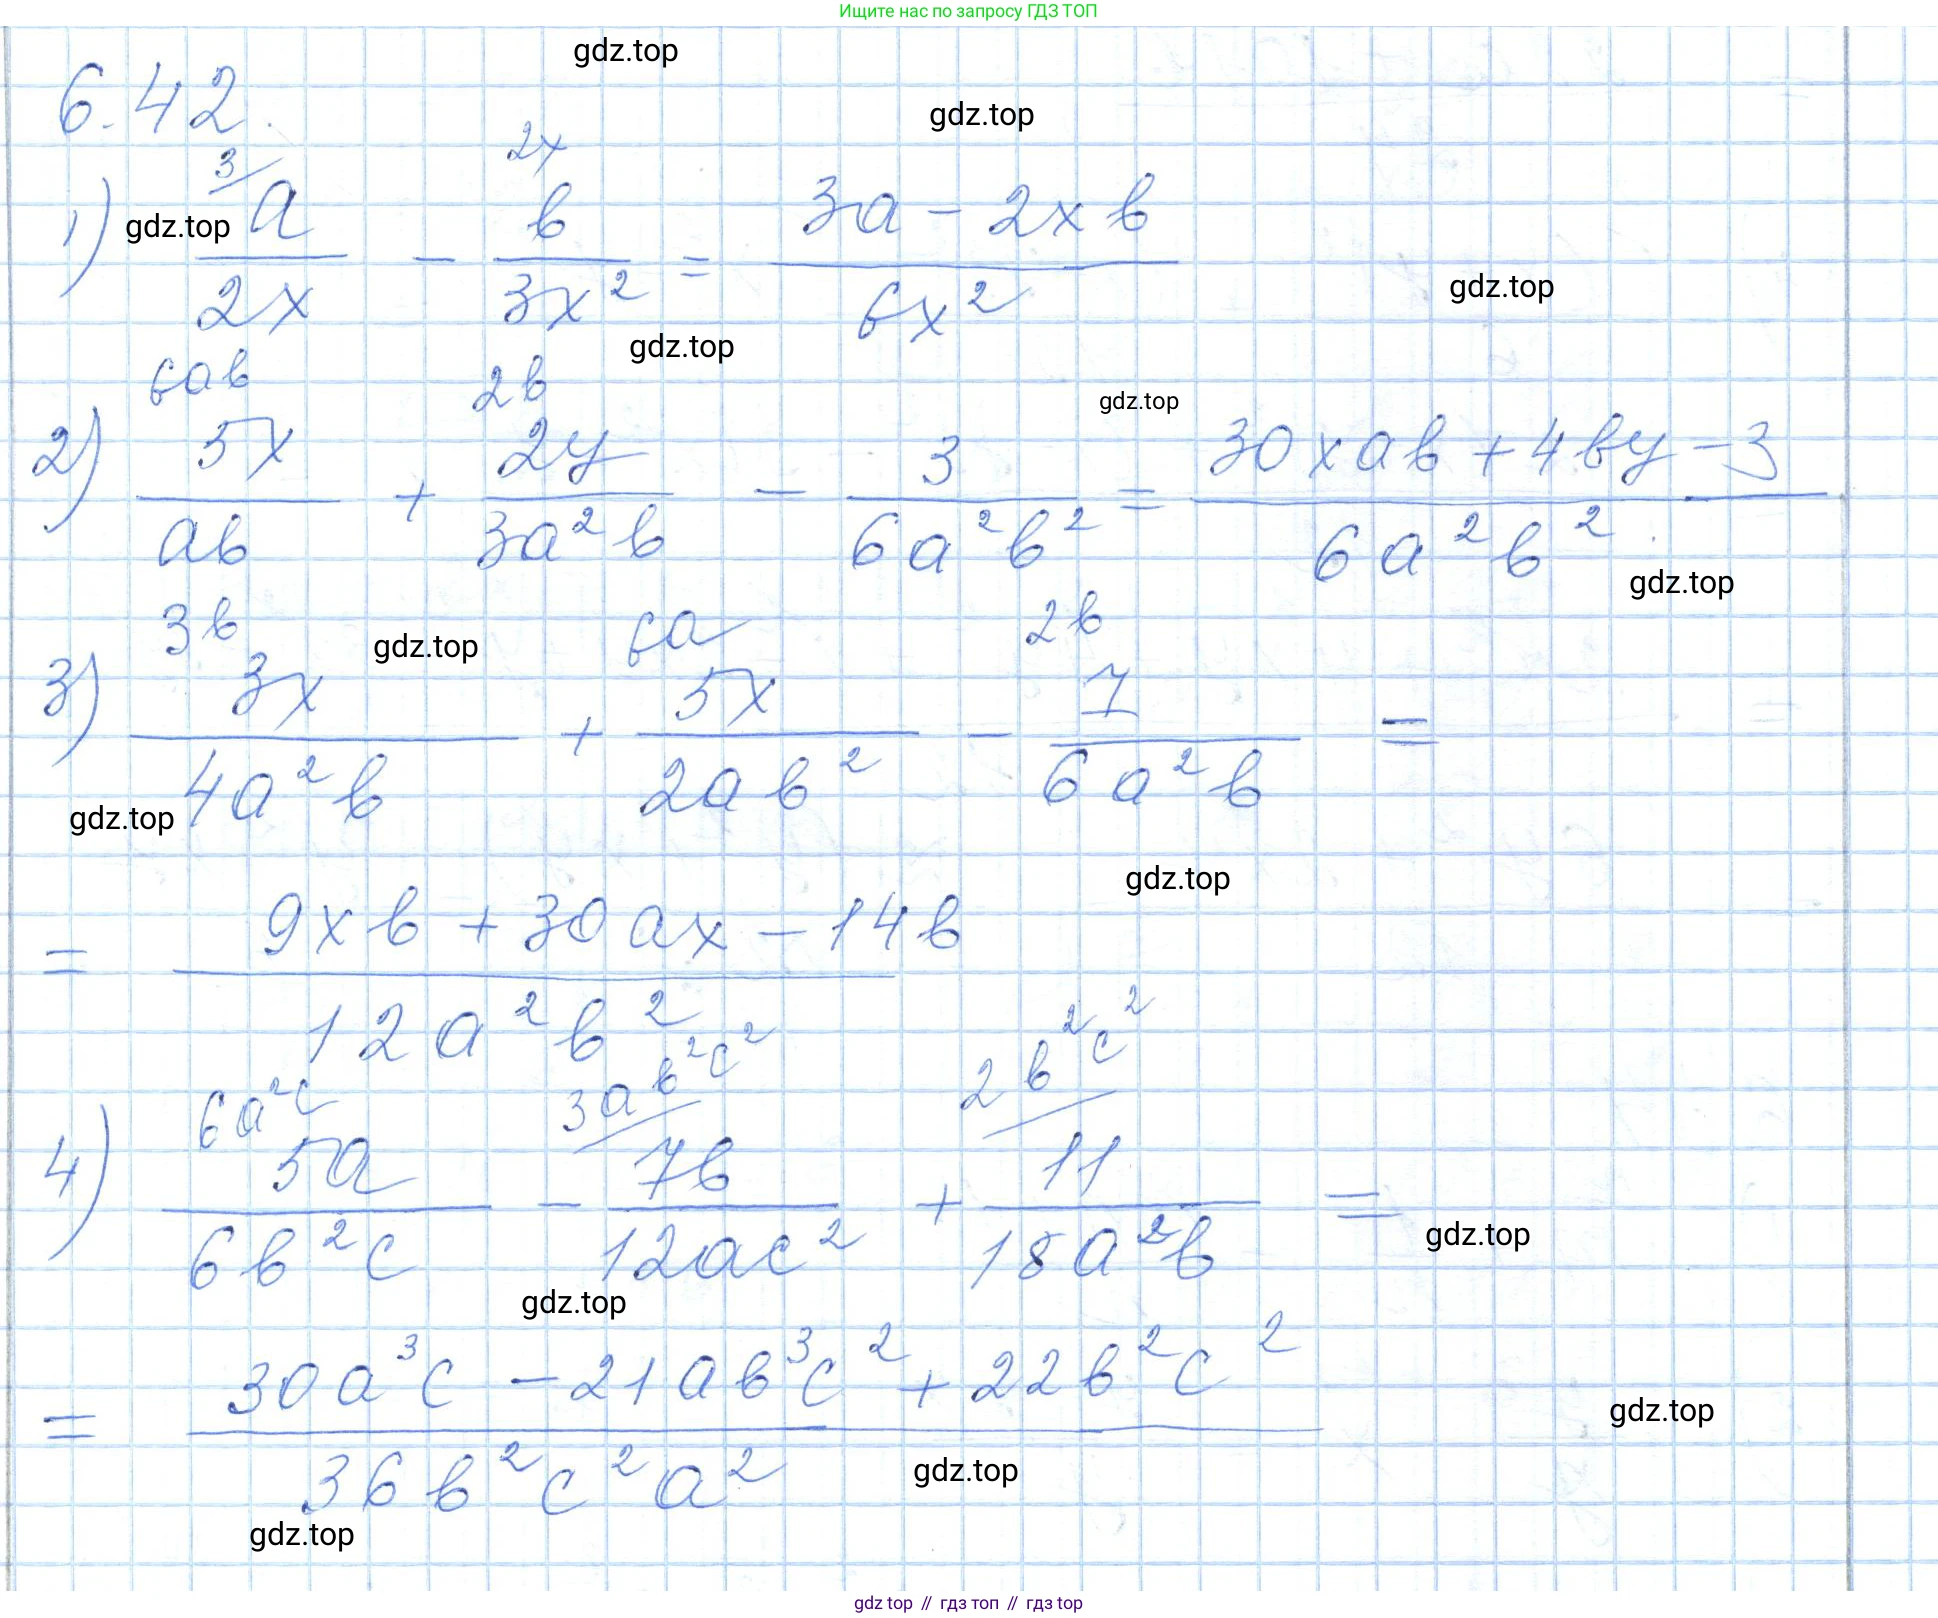 Ищите нас по запросу ГДЗ ТОП
gdz.top
6.42.
gdz.top
1) 3/a/2x - 2x b/3x² = (3a - 2xb)/6x²
gdz.top
gdz.top
gdz.top
2) 6ab 5x/ab + 2b 2y/3a²b - 3/6a²b² = (30xab + 4by - 3)/6a²b².
gdz.top
gdz.top
3) 3b 3x/4a²b + 6a 5x/2ab² - 2b 7/6a²b =
gdz.top
gdz.top
gdz.top
= (9xb + 30ax - 14b)/12a²b²
gdz.top
4) 6a²c 5a/6b²c - 3ab²c² 7b/12ac² + 2b²c² 11/18a²b =
gdz.top
gdz.top
= (30a³c - 21ab³c² + 22b²c²)/36b²c²a²
gdz.top
gdz.top
gdz.top
gdz top // гдз топ // гдз top